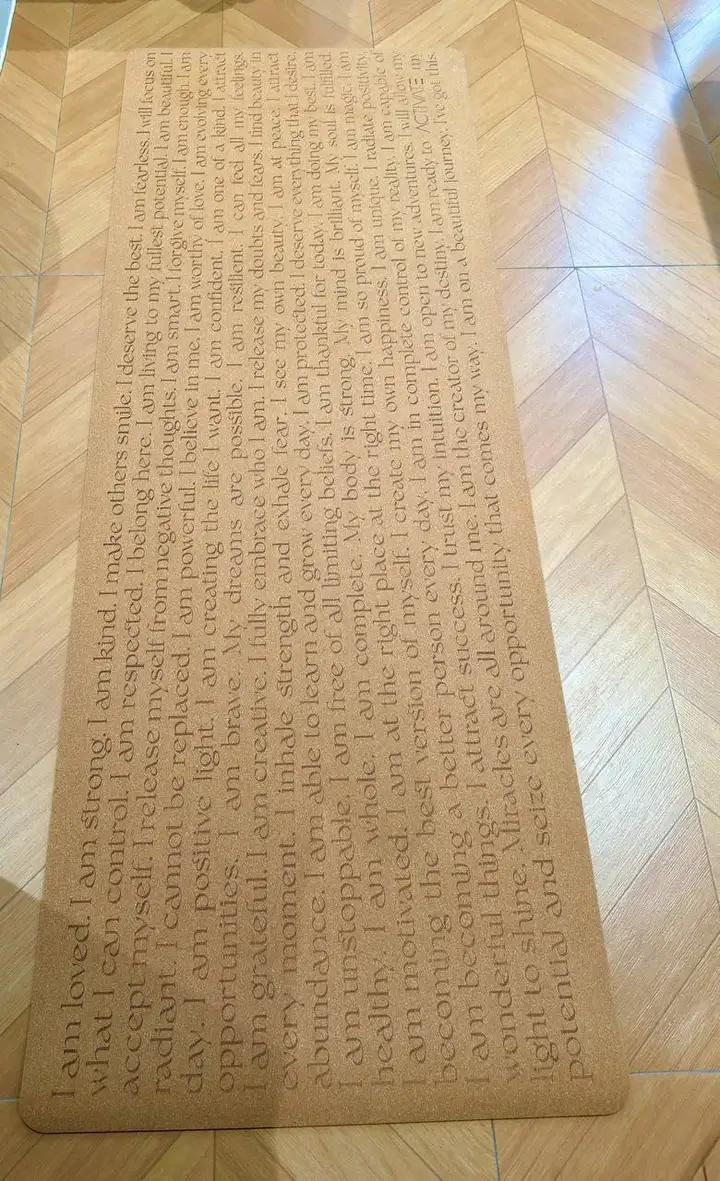 I am loved. I am strong. I am kind. I make others smile. I deserve the best. I am fearless. I will focus on
what I can control. I am respected. I belong here. I am living to my fullest potential. I am beautiful. I
accept myself. I release myself from negative thoughts. I am smart. I forgive myself. I am enough. I am
radiant. I cannot be replaced. I am powerful. I believe in me. I am worthy of love. I am evolving every
day. I am positive light. I am creating the life I want. I am confident. I am one of a kind. I attract
opportunities. I am brave. My dreams are possible. I am resilient. I can feel all my feelings.
I am grateful. I am creative. I fully embrace who I am. I release my doubts and fears. I find beauty in
every moment. I inhale strength and exhale fear. I see my own beauty. I am at peace. I attract
abundance. I am able to learn and grow every day. I am protected. I deserve everything that I desire.
I am unstoppable. I am free of all limiting beliefs. I am thankful for today. I am doing my best. I am
healthy. I am whole. I am complete. My body is strong. My mind is brilliant. My soul is fulfilled.
I am motivated. I am at the right place at the right time. I am so proud of myself. I am magic. I am
becoming the best version of myself. I create my own happiness. I am unique. I radiate positivity.
I am becoming a better person every day. I am in complete control of my reality. I am capable of
wonderful things. I attract success. I trust my intuition. I am open to new adventures. I will allow my
light to shine. Miracles are all around me. I am the creator of my destiny. I am ready to ACTIVATE my
potential and seize every opportunity that comes my way. I am on a beautiful journey. I've got this.